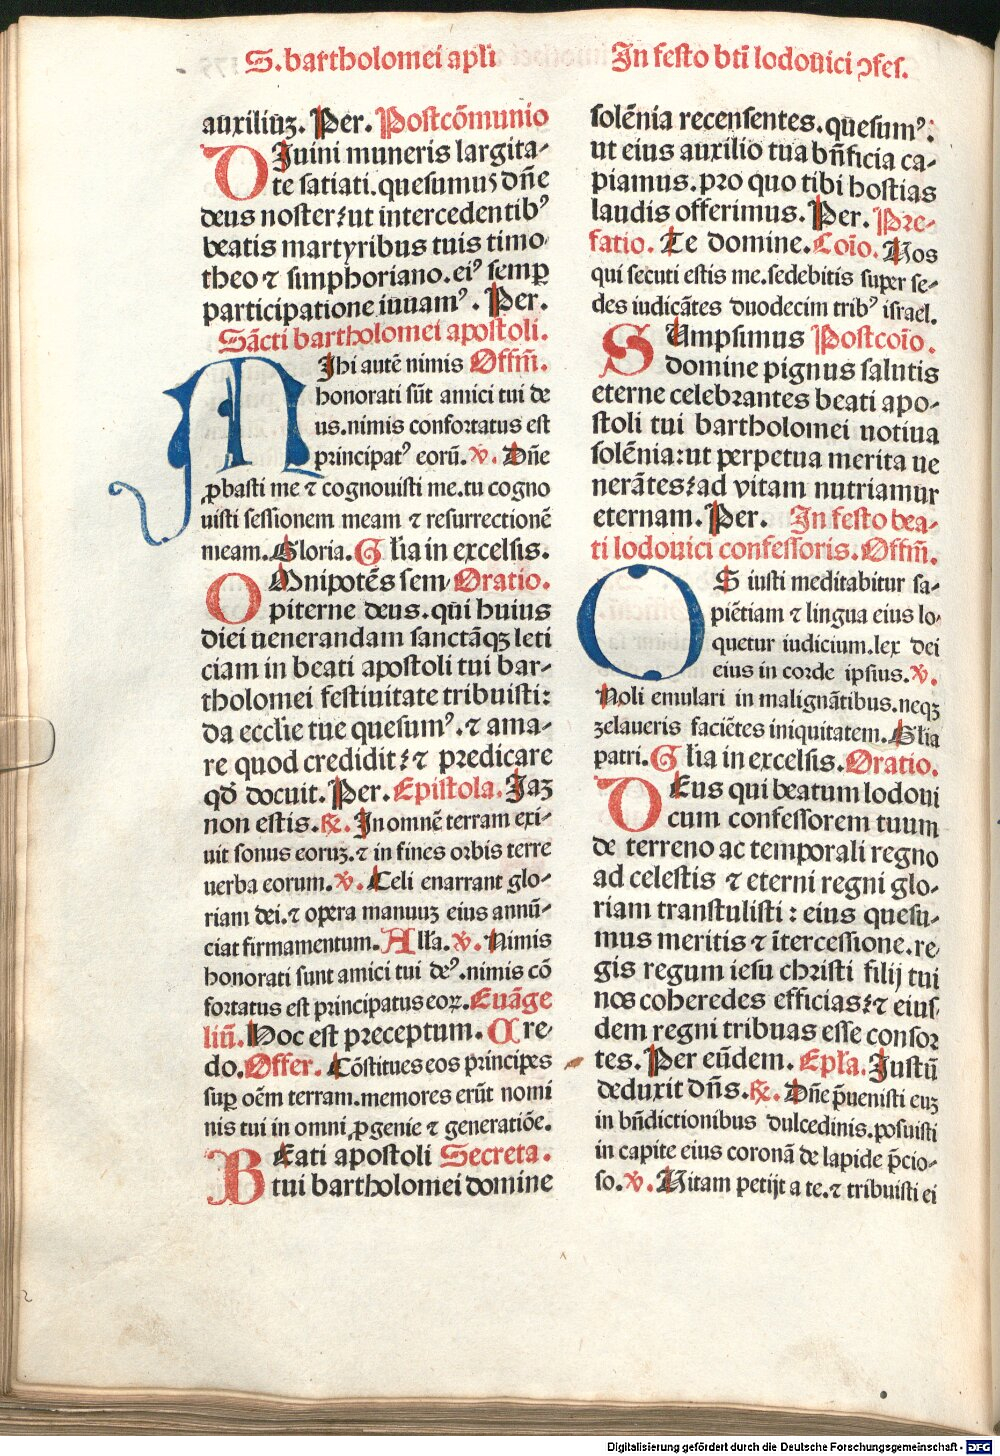 S. bartholomei apl̄i
In festo bt̄i lodouici ↄfes.
auxiliuꝫ. Per. Postcōmunio
DIuini muneris largita-
te satiati. quesumus dn̄e
deus noster: ut intercedentibꝰ
beatis martyribus tuis timo
theo ⁊ simphoriano. eiꝰ semꝑ
participatione iuuamꝰ. Per.
Sācti bartholomei apostoli.
MIhi autē nimis Offm̄.
honorati sūt amici tui de
us. nimis confortatus est
principatꝰ eorū. ℣. Dn̄e
ꝓbasti me ⁊ cognouisti me. tu cogno
uisti sessionem meam ⁊ resurrectionē
meam. Gloria. Gl̄ia in excelsis.
OMnipotēs sem Oratio.
piterne deus. qui huius
diei uenerandam sanctāqꝫ leti
ciam in beati apostoli tui bar-
tholomei festiuitate tribuisti:
da ecclie tue quesumꝰ. ⁊ ama-
re quod credidit: ⁊ predicare
qđ docuit. Per. Epistola. Iaꝫ
non estis. ℞. In omnē terram exi-
uit sonus eoruꝫ. ⁊ in fines orbis terre
uerba eorum. ℣. Celi enarrant glo-
riam dei. ⁊ opera manuuꝫ eius annū-
ciat firmamentum. All̄a. ℣. Nimis
honorati sunt amici tui deꝰ. nimis cō
fortatus est principatus eoꝝ. Euāge
liū. Hoc est preceptum. Cre-
do. Offer. Cōstitues eos principes
suꝑ oēm terram. memores erūt nomi
nis tui in omni ꝓgenie ⁊ generatiōe.
BEati apostoli Secreta.
tui bartholomei domine
solēnia recensentes. quesumꝰ:
ut eius auxilio tua bn̄ficia ca-
piamus. pro quo tibi hostias
laudis offerimus. Per. Pre-
fatio. Te domine. Coīo. Uos
qui secuti estis me. sedebitis super se-
des iudicātes duodecim tribꝰ israel.
SUmpsimus Postcoīo.
domine pignus salutis
eterne celebrantes beati apo-
stoli tui bartholomei notiua
solēnia: ut perpetua merita ue
nerātes: ad vitam nutriamur
eternam. Per. In festo bea-
ti lodouici confessoris. Offm̄.
OS iusti meditabitur sa-
piētiam ⁊ lingua eius lo-
quetur iudicium. lex dei
eius in corde ipsius. ℣.
Noli emulari in malignātibus. neqꝫ
zelaueris faciētes iniquitatem. Gl̄ia
patri. Gl̄ia in excelsis. Oratio.
DEus qui beatum lodoui
cum confessorem tuum
de terreno ac temporali regno
ad celestis ⁊ eterni regni glo-
riam transtulisti: eius quesu-
mus meritis ⁊ ītercessione. re-
gis regum iesu christi filij tui
nos coheredes efficias: ⁊ eius-
dem regni tribuas esse consor
tes. Per eūdem. Epl̄a. Iustū
deduxit dn̄s. ℞. Dn̄e p̄uenisti euꝫ
in bn̄dictionibus dulcedinis. posuisti
in capite eius coronā de lapide p̄cio-
so. ℣. Uitam petijt a te. ⁊ tribuisti ei
Digitalisierung gefördert durch die Deutsche Forschungsgemeinschaft - DFG